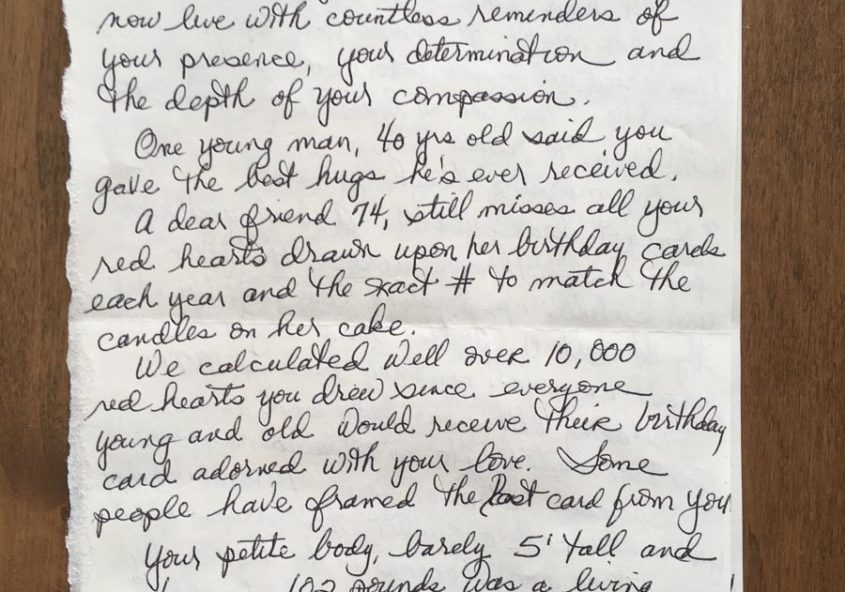 now live with countless reminders of
your presence, your determination and
the depth of your compassion.
One young man, 40 yrs old said you
gave the best hugs he's ever received.
A dear friend 74, still misses all your
red hearts drawn upon her birthday cards
each year and the exact # to match the
candles on her cake.
We calculated well over 10,000
red hearts you drew since everyone
young and old would receive their birthday
card adorned with your love. Some
people have framed the last card from you
Your petite body, barely 5' tall and
102 pounds was a living